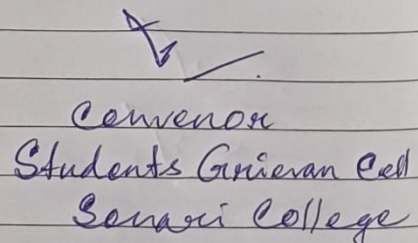 Convenor
Students Grievan Cell
Sonari College